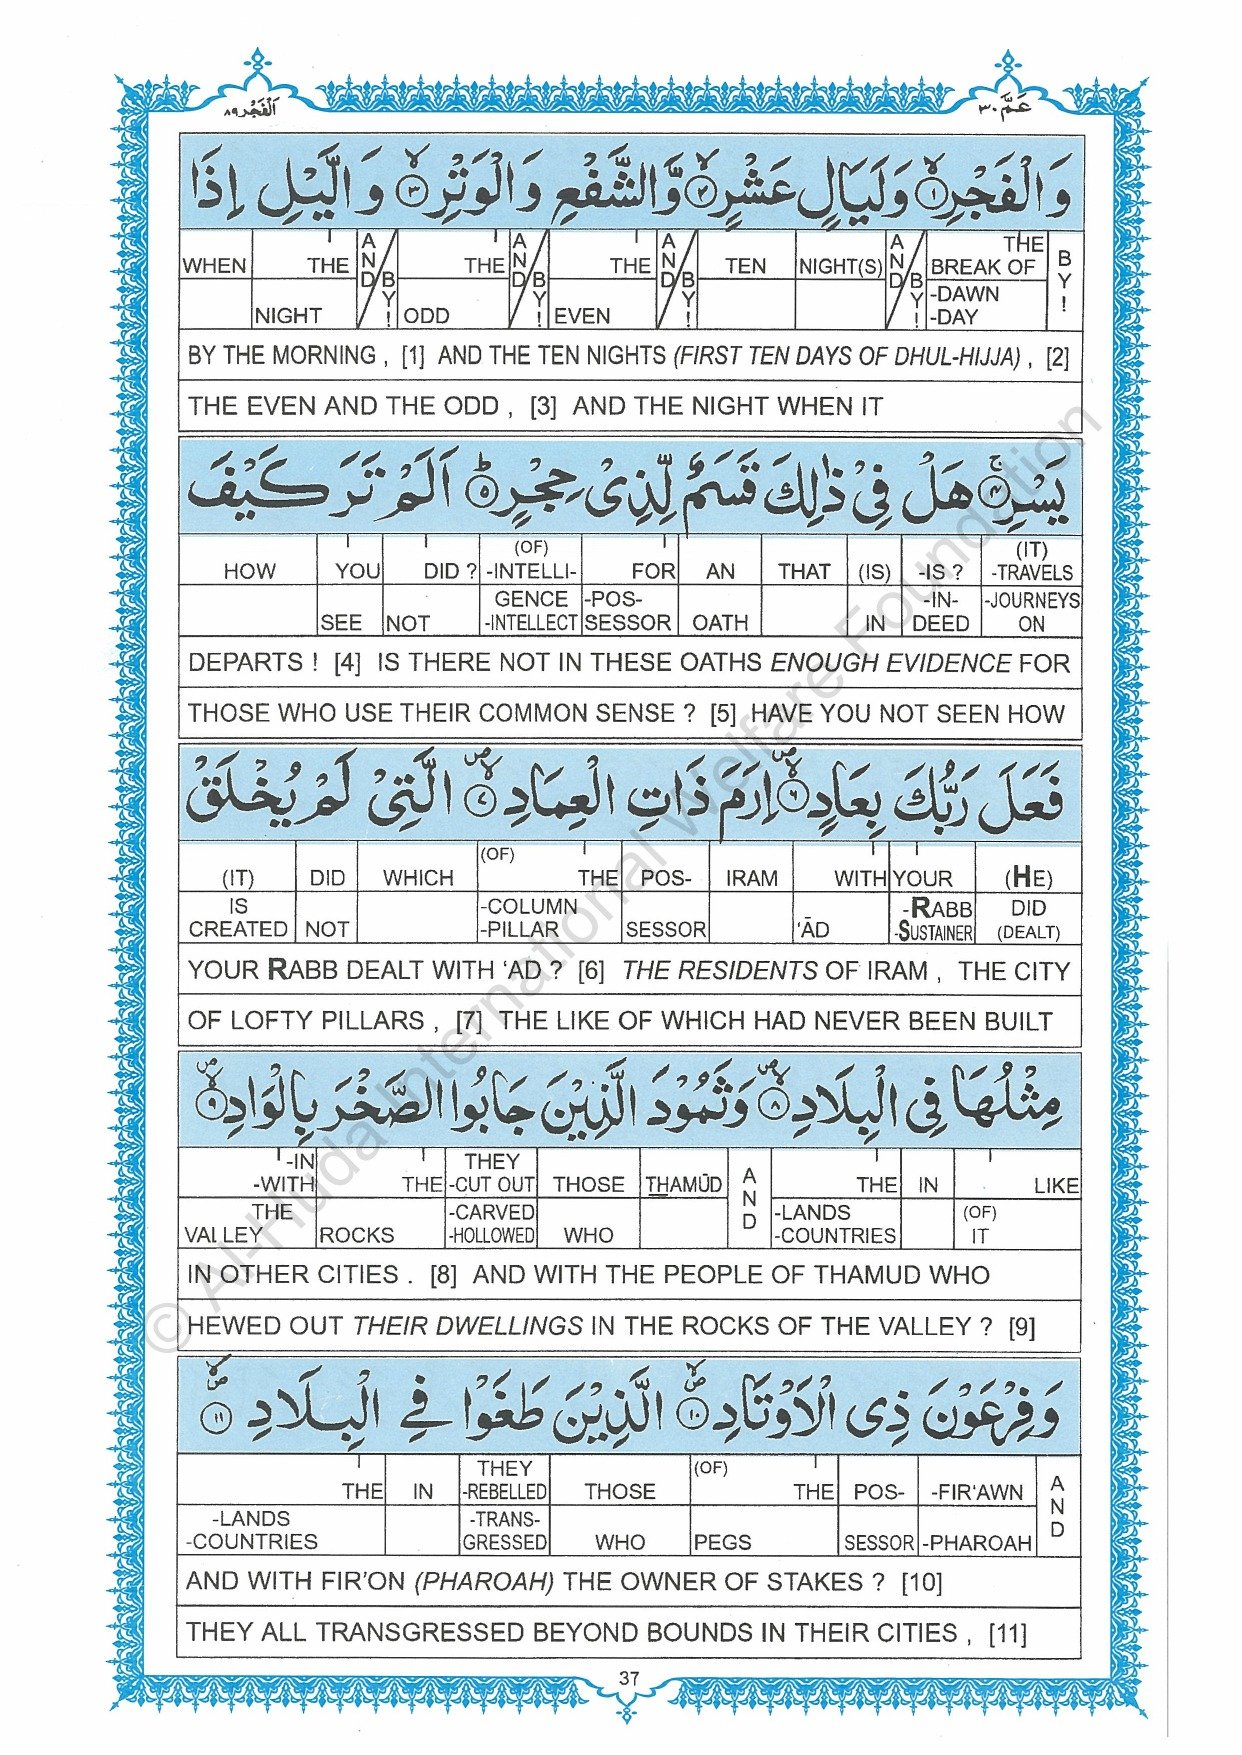 عَمَّ ٣٠
اَلْفَجْر ٨٩
وَالْفَجْرِ ۙ ١ وَلَيَالٍ عَشْرٍ ۙ ٢ وَّالشَّفْعِ وَالْوَتْرِ ۙ ٣ وَالَّيْلِ اِذَا
WHEN THE AND THE AND THE AND TEN NIGHT(S) AND THE BREAK OF BY!
NIGHT BY! ODD BY! EVEN BY! BY! -DAWN -DAY
BY THE MORNING , [1] AND THE TEN NIGHTS (FIRST TEN DAYS OF DHUL-HIJJA) , [2]
THE EVEN AND THE ODD , [3] AND THE NIGHT WHEN IT
يَسْرِ ۚ ٤ هَلْ فِيْ ذٰلِكَ قَسَمٌ لِّذِيْ حِجْرٍ ؕ ٥ اَلَمْ تَرَ كَيْفَ
(OF) (IT)
HOW YOU DID ? -INTELLI- FOR AN THAT (IS) -IS ? -TRAVELS
GENCE -POS- -IN- -JOURNEYS
SEE NOT -INTELLECT SESSOR OATH IN DEED ON
DEPARTS ! [4] IS THERE NOT IN THESE OATHS ENOUGH EVIDENCE FOR
THOSE WHO USE THEIR COMMON SENSE ? [5] HAVE YOU NOT SEEN HOW
فَعَلَ رَبُّكَ بِعَادٍ ۙ ٦ اِرَمَ ذَاتِ الْعِمَادِ ۙ ٧ الَّتِيْ لَمْ يُخْلَقْ
(OF)
(IT) DID WHICH THE POS- IRAM WITH YOUR (HE)
IS -COLUMN -RABB DID
CREATED NOT -PILLAR SESSOR ‘ĀD -SUSTAINER (DEALT)
YOUR RABB DEALT WITH ‘AD ? [6] THE RESIDENTS OF IRAM , THE CITY
OF LOFTY PILLARS , [7] THE LIKE OF WHICH HAD NEVER BEEN BUILT
مِثْلُهَا فِي الْبِلَادِ ۙ ٨ وَثَمُوْدَ الَّذِيْنَ جَابُوا الصَّخْرَ بِالْوَادِ ۙ ٩
-IN THEY
-WITH THE -CUT OUT THOSE THAMŪD AND THE IN LIKE
THE -CARVED -LANDS (OF)
VALLEY ROCKS -HOLLOWED WHO -COUNTRIES IT
IN OTHER CITIES . [8] AND WITH THE PEOPLE OF THAMUD WHO
HEWED OUT THEIR DWELLINGS IN THE ROCKS OF THE VALLEY ? [9]
وَفِرْعَوْنَ ذِي الْاَوْتَادِ ۙ ١٠ الَّذِيْنَ طَغَوْا فِي الْبِلَادِ ۙ ١١
THEY (OF)
THE IN -REBELLED THOSE THE POS- -FIR'AWN AND
-LANDS -TRANS-
-COUNTRIES GRESSED WHO PEGS SESSOR -PHAROAH
AND WITH FIR'ON (PHAROAH) THE OWNER OF STAKES ? [10]
THEY ALL TRANSGRESSED BEYOND BOUNDS IN THEIR CITIES , [11]
37
© Al-Huda International Welfare Foundation